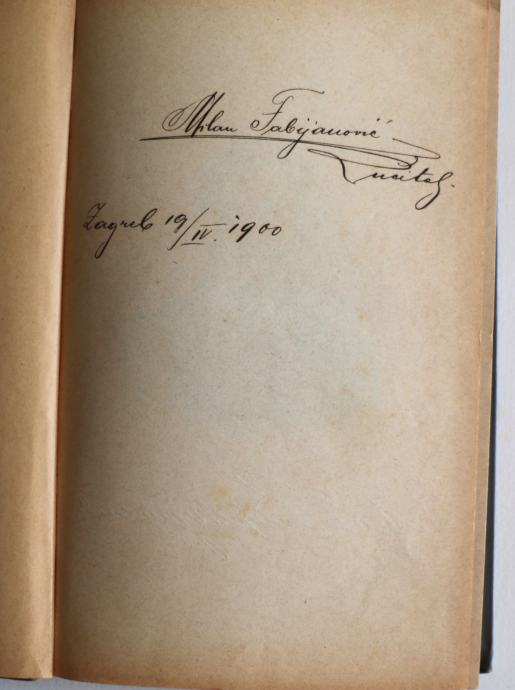 Milan Fabijanović
učitelj.
Zagreb 19/IV. 1900